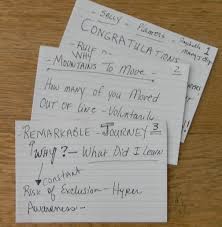 - Solly - Planners -
1
CONGRATULATIONS
- RULE
WHY
- MOUNTAINS To Move - 2
How many of you Moved
OUT OF LINE - VOLUNTARILY
REMARKABLE - JOURNEY 3
? WHY? - What Did I Learn
constant
Risk of Exclusion - Hyper
Awareness -